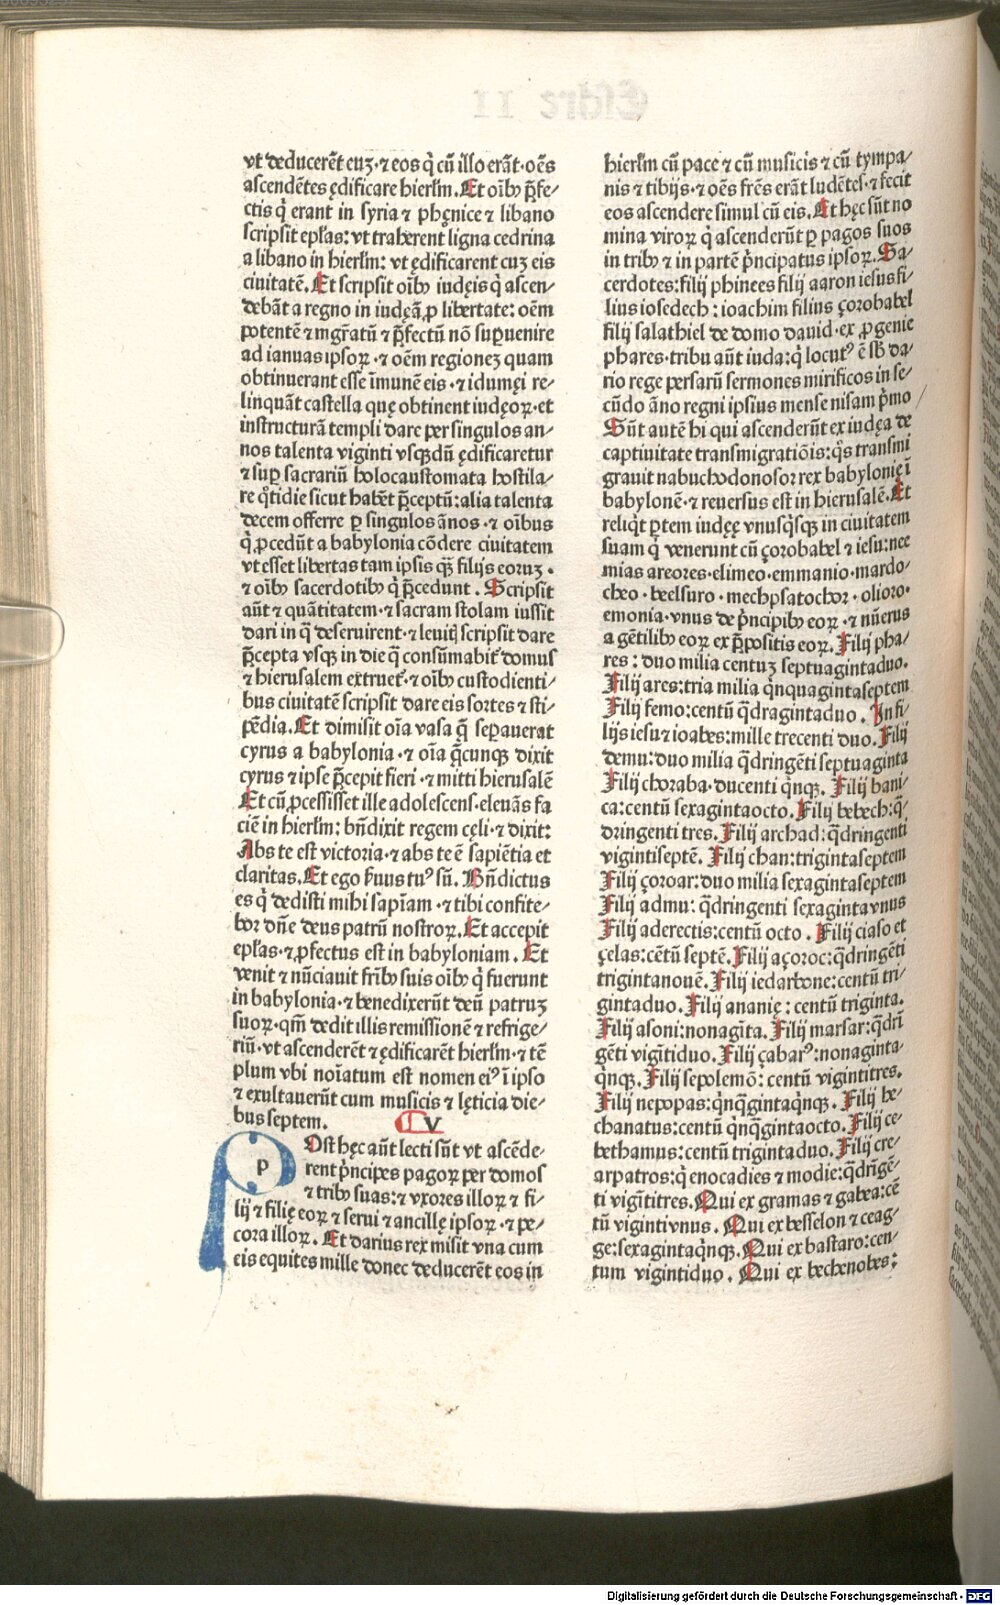 vt deducerēt euꝫ·⁊ eos q̇ cū illo erāt·oēs
ascendētes ędificare hierl̄m. Et oīb⁹ p̄fe/
ctis q̇ erant in syria ⁊ phęnice ⁊ libano
scripsit epl̄as: vt traherent ligna cedrina
a libano in hierl̄m: vt ędificarent cuꝫ eis
ciuitatē. Et scripsit oīb⁹ iudęis q̇ ascen/
debāt a regno in iudęā ꝓ libertate: oēm
potentē ⁊ mgr̄atū ⁊ p̄fectū nō suꝑuenire
ad ianuas ipsoꝝ·⁊ oēm regioneꝫ quam
obtinuerant esse īmunē eis·⁊ idumęi re/
linquāt castella quę obtinent iudęoꝝ·et
instructurā templi dare per singulos an/
nos talenta viginti vsqꝫdū ędificaretur
⁊ suꝑ sacrariū holocaustomata hostila/
re q̊tidie sicut habēt p̄ceptū: alia talenta
decem offerre ꝑ singulos ānos·⁊ oībus
q̇ ꝓcedūt a babylonia cōdere ciuitatem
vt esset libertas tam ipsis qꝫ filijs eoruꝫ·
⁊ oīb⁹ sacerdotib⁹ q̇ p̄cedunt. Scripsit
aūt ⁊ quātitatem·⁊ sacram stolam iussit
dari in q̄ deseruirent·⁊ leuitį scripsit dare
p̄cepta vsqꝫ in die q̄ consūmabit̄ domus
⁊ hierusalem extruet̄·⁊ oīb⁹ custodienti/
bus ciuitatē scripsit dare eis sortes ⁊ sti/
pēdia. Et dimisit oīa vasa q̄ separauerat
cyrus a babylonia·⁊ oīa q̄cunqꝫ dixit
cyrus ⁊ ipse p̄cepit fieri·⁊ mitti hierusalē
Et cū ꝓcessisset ille adolescens·eleuās fa
ciē in hierl̄m: bn̄dixit regem cęli·⁊ dixit:
Abs te est victoria·⁊ abs te ē sapiētia et
claritas. Et ego ẜuus tu⁹ sū. Bn̄dictus
es q̇ dedisti mihi sapīam·⁊ tibi confite/
bor dn̄e deus patrū nostroꝝ. Et accepit
epl̄as·⁊ ꝓfectus est in babyloniam. Et
venit ⁊ nūciauit fr̄ib⁹ suis oīb⁹ q̇ fuerunt
in babylonia·⁊ benedixerūt deū patruꝫ
suoꝝ·qm̄ dedit illis remissionē ⁊ refrige/
riū·vt ascenderēt ⁊ ędificarēt hierl̄m·⁊ tē
plum vbi noīatum est nomen ei⁹ ī ipso
⁊ exultauerūt cum musicis ⁊ lęticia die/
bus septem. V
p Ost hęc aūt lecti sūt vt ascēde/
rent p̄ncipes pagoꝝ per domos
⁊ trib⁹ suas: ⁊ vxores illoꝝ ⁊ fi/
lij ⁊ filię eoꝝ ⁊ serui ⁊ ancillę ipsoꝝ·⁊ pe/
cora illoꝝ. Et darius rex misit vna cum
eis equites mille donec deducerēt eos in
hierl̄m cū pace ⁊ cū musicis ⁊ cū tympa/
nis ⁊ tibijs·⁊ oēs fr̄es erāt ludētes·⁊ fecit
eos ascendere simul cū eis. Et hęc sūt no
mina viroꝝ q̇ ascenderūt ꝑ pagos suos
in trib⁹ ⁊ in partē p̄ncipatus ipsoꝝ. Sa/
cerdotes: filij phinees filij aaron iesus fi/
lius iosedech: ioachim filius çorobabel
filij salathiel de domo dauid·ex ꝓgenie
phares·tribu aūt iuda: q̇ locut⁹ ē sb̄ da/
rio rege persarū sermones mirificos in se/
cūdo āno regni ipsius mense nisam p̄mo
Sūt autē hi qui ascenderūt ex iudęa de
captiuitate transmigratiōis: q̊s transmi
grauit nabuchodonosor rex babylonię ī
babylonē·⁊ reuersus est in hierusalē. Et
reliq̇t ꝑtem iudęę vnusq̇sqꝫ in ciuitatem
suam q̇ venerunt cū çorobabel ⁊ iesu: nee
mias areores·elimeo·emmanio·mardo/
cheo·beelsuro·mechpsatochor·olioro·
emonia·vnus de p̄ncipib⁹ eoꝝ·⁊ nūerus
a gētilib⁹ eoꝝ ex p̄positis eoꝝ. Filij pha/
res: duo milia centuꝫ septuagintaduo.
Filij ares: tria milia q̇nquagintaseptem
Filij femo: centū q̄dragintaduo. In fi/
lijs iesu ⁊ ioabes: mille trecenti duo. Filij
demu: duo milia q̄dringēti septuaginta
Filij choraba·ducenti q̇nqꝫ. Filij bani/
ca: centū sexagintaocto. Filij bebech: q̄/
dringenti tres. Filij archad: q̄dringenti
vigintiseptē. Filij chan: trigintaseptem
Filij çoroar: duo milia sexagintaseptem
Filij admu: q̄dringenti sexagintavnus
Filij aderectis: centū octo. Filij ciaso et
çelas: cētū septē. Filij açoroc: q̄dringēti
trigintanouē. Filij iedarbone: centū tri/
gintaduo. Filij ananię: centū triginta.
Filij asoni: nonagīta. Filij marsar: q̄drī
gēti vigītiduo. Filij çabar⁹: nonaginta·
q̇nqꝫ. Filij sepolemō: centū vigintitres.
Filij nepopas: q̇nq̄gintaq̇nqꝫ. Filij he/
chanatus: centū q̇nq̄gintaocto. Filij ce/
bethamus: centū trigintaduo. Filij cre/
arpatros: q̇ enocadies ⁊ modie: q̄drīgē/
ti vigītitres. Qui ex gramas ⁊ gabea: cē
tū vigintivnus. Qui ex besselon ⁊ ceag/
ge: sexagintaq̇nqꝫ. Qui ex bastaro: cen/
tum vigintiduo. Qui ex bechenobes:
Digitalisierung gefördert durch die Deutsche Forschungsgemeinschaft - DFG